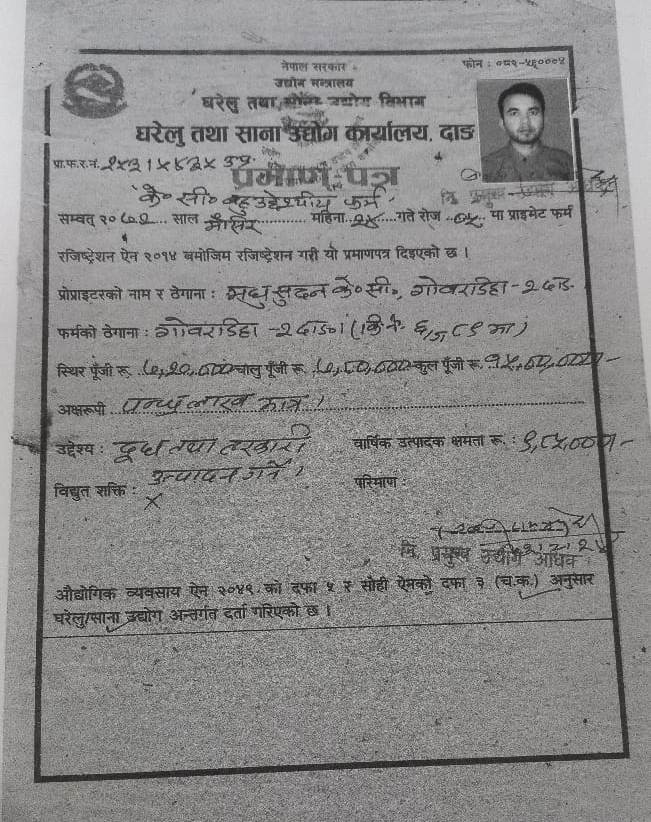 नेपाल सरकार
फोन : ०८२-५६०००४
उद्योग मन्त्रालय
घरेलु तथा साना उद्योग विभाग
घरेलु तथा साना उद्योग कार्यालय, दाङ
प्रा.फ.र.नं.
प्रमाण-पत्र
के० सी० बहुउद्देश्यीय फर्म
सम्वत् २०७२ साल मंसिर महिना २४ गते रोज मा प्राइभेट फर्म
रजिष्ट्रेशन ऐन २०१४ बमोजिम रजिष्ट्रेशन गरी यो प्रमाणपत्र दिइएको छ ।
प्रोप्राइटरको नाम र ठेगाना : मधुसुदन के० सी०, गोवरडिहा - २ दाङ
फर्मको ठेगाना : गोवरडिहा - २ दाङ ।
स्थिर पूँजी रू. ७,२०,०००/- चालु पूँजी रू. ७,८०,०००/- कुल पूँजी रू. १५,००,०००/-
अक्षरूपी पन्ध्र लाख मात्र ।
उद्देश्य : दूध तथा तरकारी
वार्षिक उत्पादक क्षमता रू. :
उत्पादन गर्ने ।
विद्युत शक्ति : X
परिमाण :
नि. प्रमुख उद्योग अधिकृत
औद्योगिक व्यवसाय ऐन २०४९ को दफा ५ र सोही ऐनको दफा ३ (च.क.) अनुसार
घरेलु/साना उद्योग अन्तर्गत दर्ता गरिएको छ ।